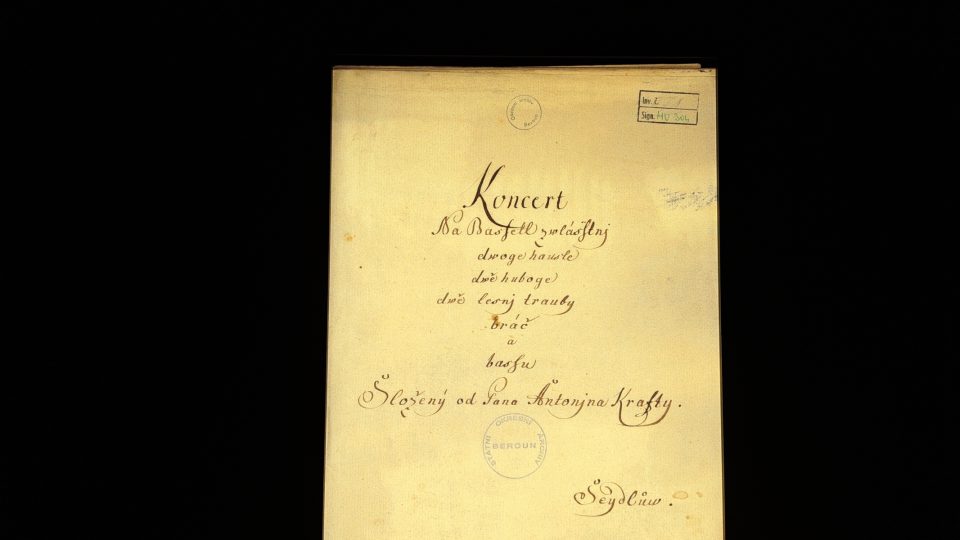 Inv. č.
Sign. HU 304
Koncert
Na Bassetl zwlásstnj
dwoge hausle
dwě huboge
dwě lesnj trauby
bráč
a
bassu
Složený od Pana Antonjna Krafty.
STÁTNI OKRESNÍ ARCHIV
BEROUN
Šeydlůw.